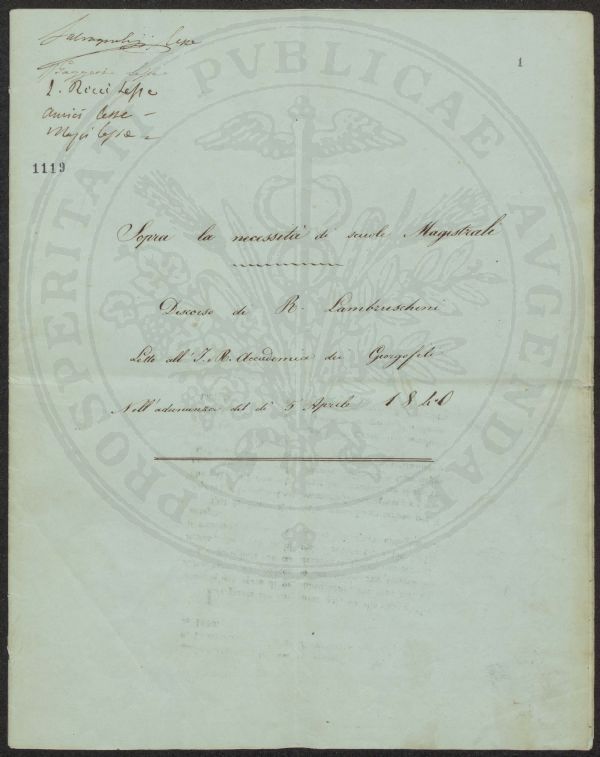 Lesse
Lesse
L. Ricci Lesse
Amici Lesse –
Majer Lesse –
1
1119
Sopra la necessità di scuole Magistrali
Discorso di R. Lambruschini
Letto all'I. R. Accademia dei Georgofili
Nell'adunanza del dì 5 Aprile 1840
PROSPERITATI PVBLICAE AVGENDAE